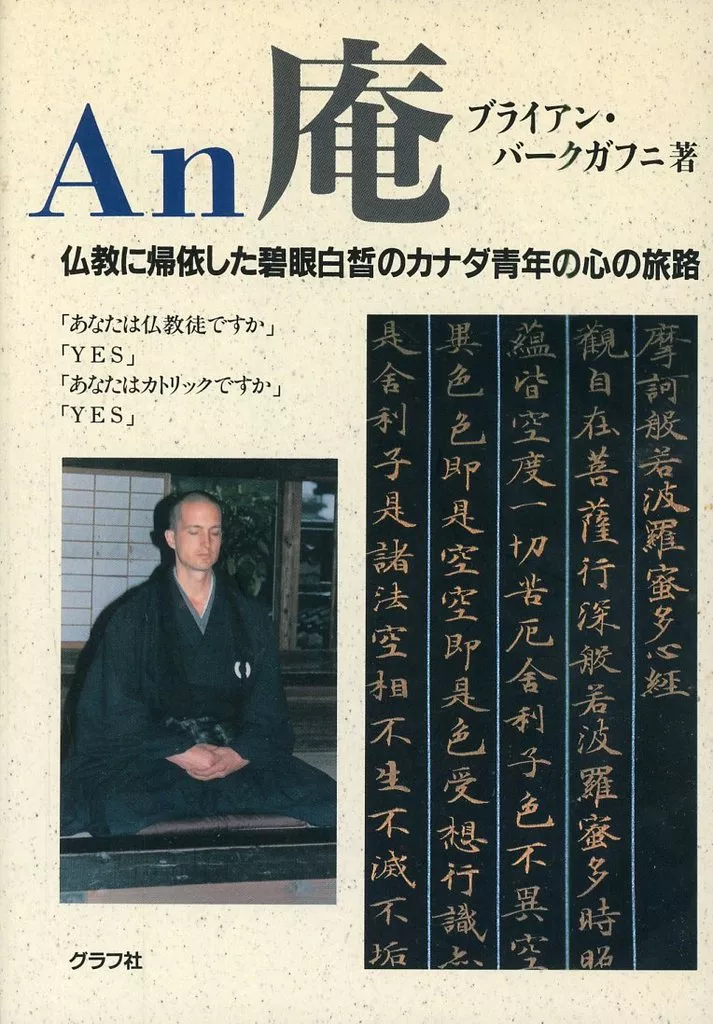 An 庵
ブライアン・
バークガフニ 著
仏教に帰依した碧眼白皙のカナダ青年の心の旅路
「あなたは仏教徒ですか」
「YES」
「あなたはカトリックですか」
「YES」
摩訶般若波羅蜜多心經
觀自在菩薩行深般若波羅蜜多時照
蘊皆空度一切苦厄舍利子色不異空
異色色即是空空即是色受想行識亦
是舍利子是諸法空相不生不滅不垢
グラフ社